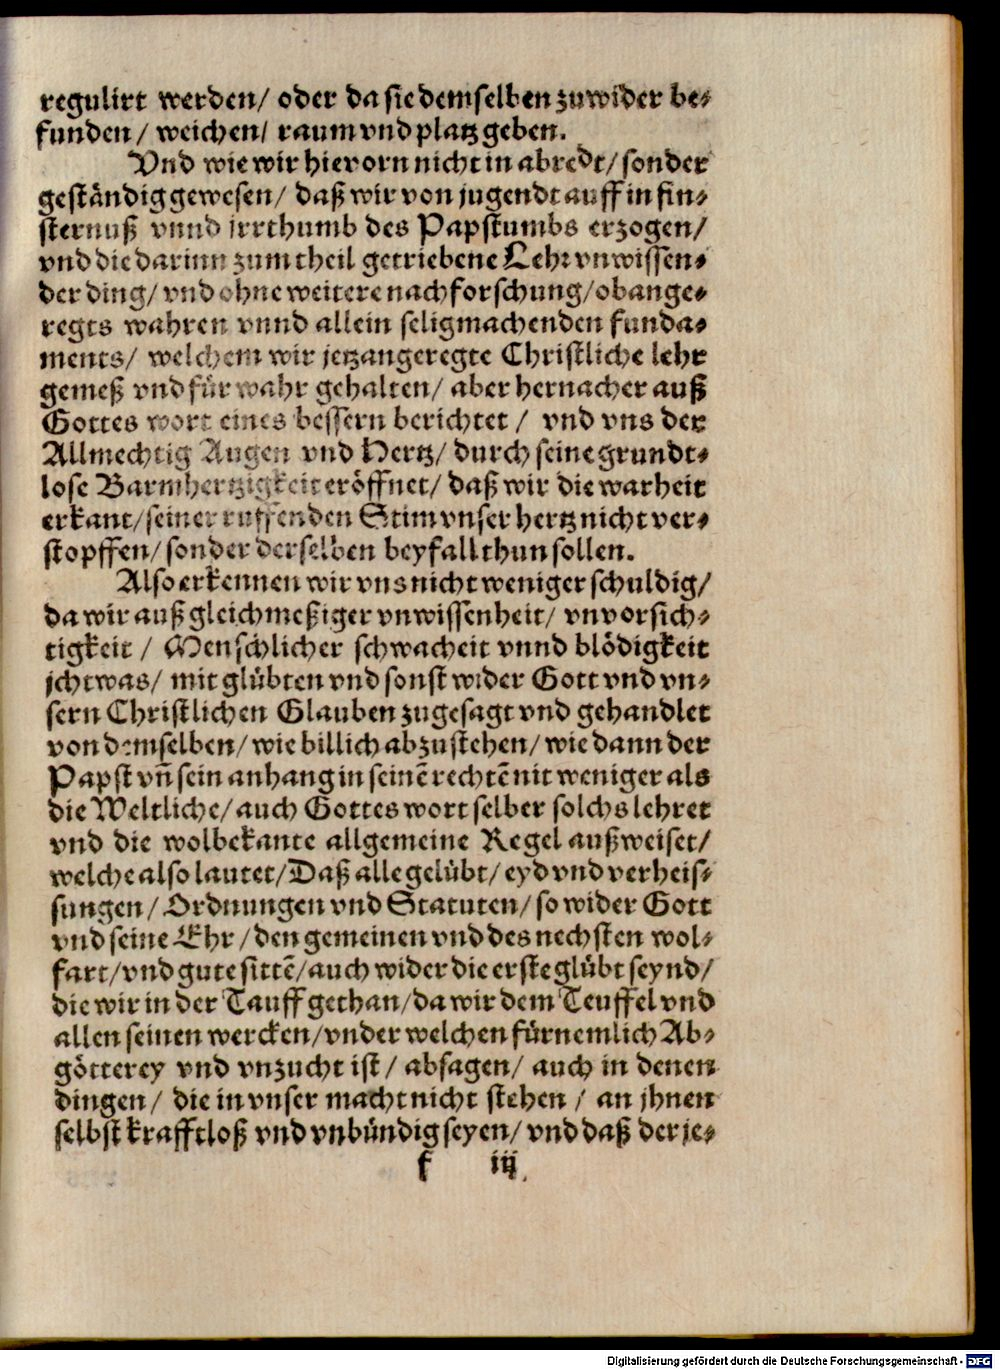 regulirt werden/ oder da sie demselben zuwider be⸗
funden/ weichen/ raum vnd platz geben.
Vnd wie wir hievorn nicht in abredt/ sonder
geständig gewesen/ daß wir von jugendt auff in fin⸗
sternuß vnnd jrrthumb des Papstumbs erzogen/
vnd die darinn zum theil getriebene Lehr vnwissen⸗
der ding/ vnd ohne weitere nachforschung/ obange⸗
regts wahren vnnd allein seligmachenden funda⸗
ments/ welchem wir jetzangeregte Christliche lehr
gemeß vnd für wahr gehalten/ aber hernacher auß
Gottes wort eines bessern berichtet/ vnd vns der
Allmechtig Augen vnd Hertz/ durch seine grundt⸗
lose Barmhertzigkeit eröffnet/ daß wir die warheit
erkant/ seiner ruffenden Stim vnser hertz nicht ver⸗
stopffen/ sonder derselben beyfall thun sollen.
Also erkennen wir vns nicht weniger schuldig/
da wir auß gleichmeßiger vnwissenheit/ vnvorsich⸗
tigkeit/ Menschlicher schwacheit vnnd blödigkeit
jchtwas/ mit glübten vnd sonst wider Gott vnd vn⸗
sern Christlichen Glauben zugesagt vnd gehandlet
von demselben/ wie billich abzustehen/ wie dann der
Papst vñ sein anhang in seinẽ rechtẽ nit weniger als
die Weltliche/ auch Gottes wort selber solchs lehret
vnd die wolbekante allgemeine Regel außweiset/
welche also lautet/ Daß alle gelübt/ eyd vnd verheis⸗
sungen/ Ordnungen vnd Statuten/ so wider Gott
vnd seine Ehr/ den gemeinen vnd des nechsten wol⸗
fart/ vnd gute sittẽ/ auch wider die erste glübt seynd/
die wir in der Tauff gethan/ da wir dem Teuffel vnd
allen seinen wercken/ vnder welchen fürnemlich Ab⸗
götterey vnd vnzucht ist/ absagen/ auch in denen
dingen/ die in vnser macht nicht stehen/ an jhnen
selbst krafftloß vnd vnbündig seyen/ vnd daß der je⸗
f iij
Digitalisierung gefördert durch die Deutsche Forschungsgemeinschaft - DFG